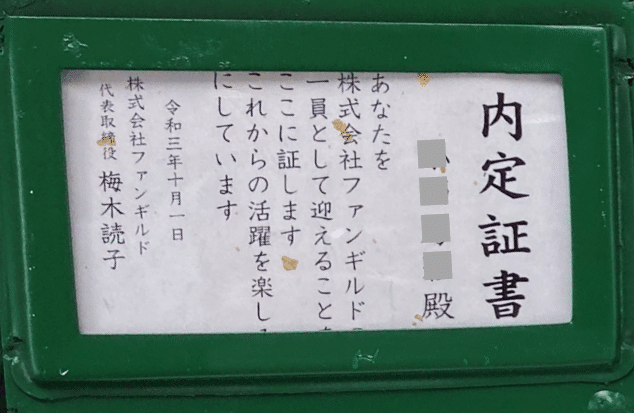 内定証書
殿
あなたを
株式会社ファンギルド
一員として迎えること
ここに証します
これからの活躍を楽し
にしています
令和三年十月一日
株式会社ファンギルド
代表取締役 梅木読子